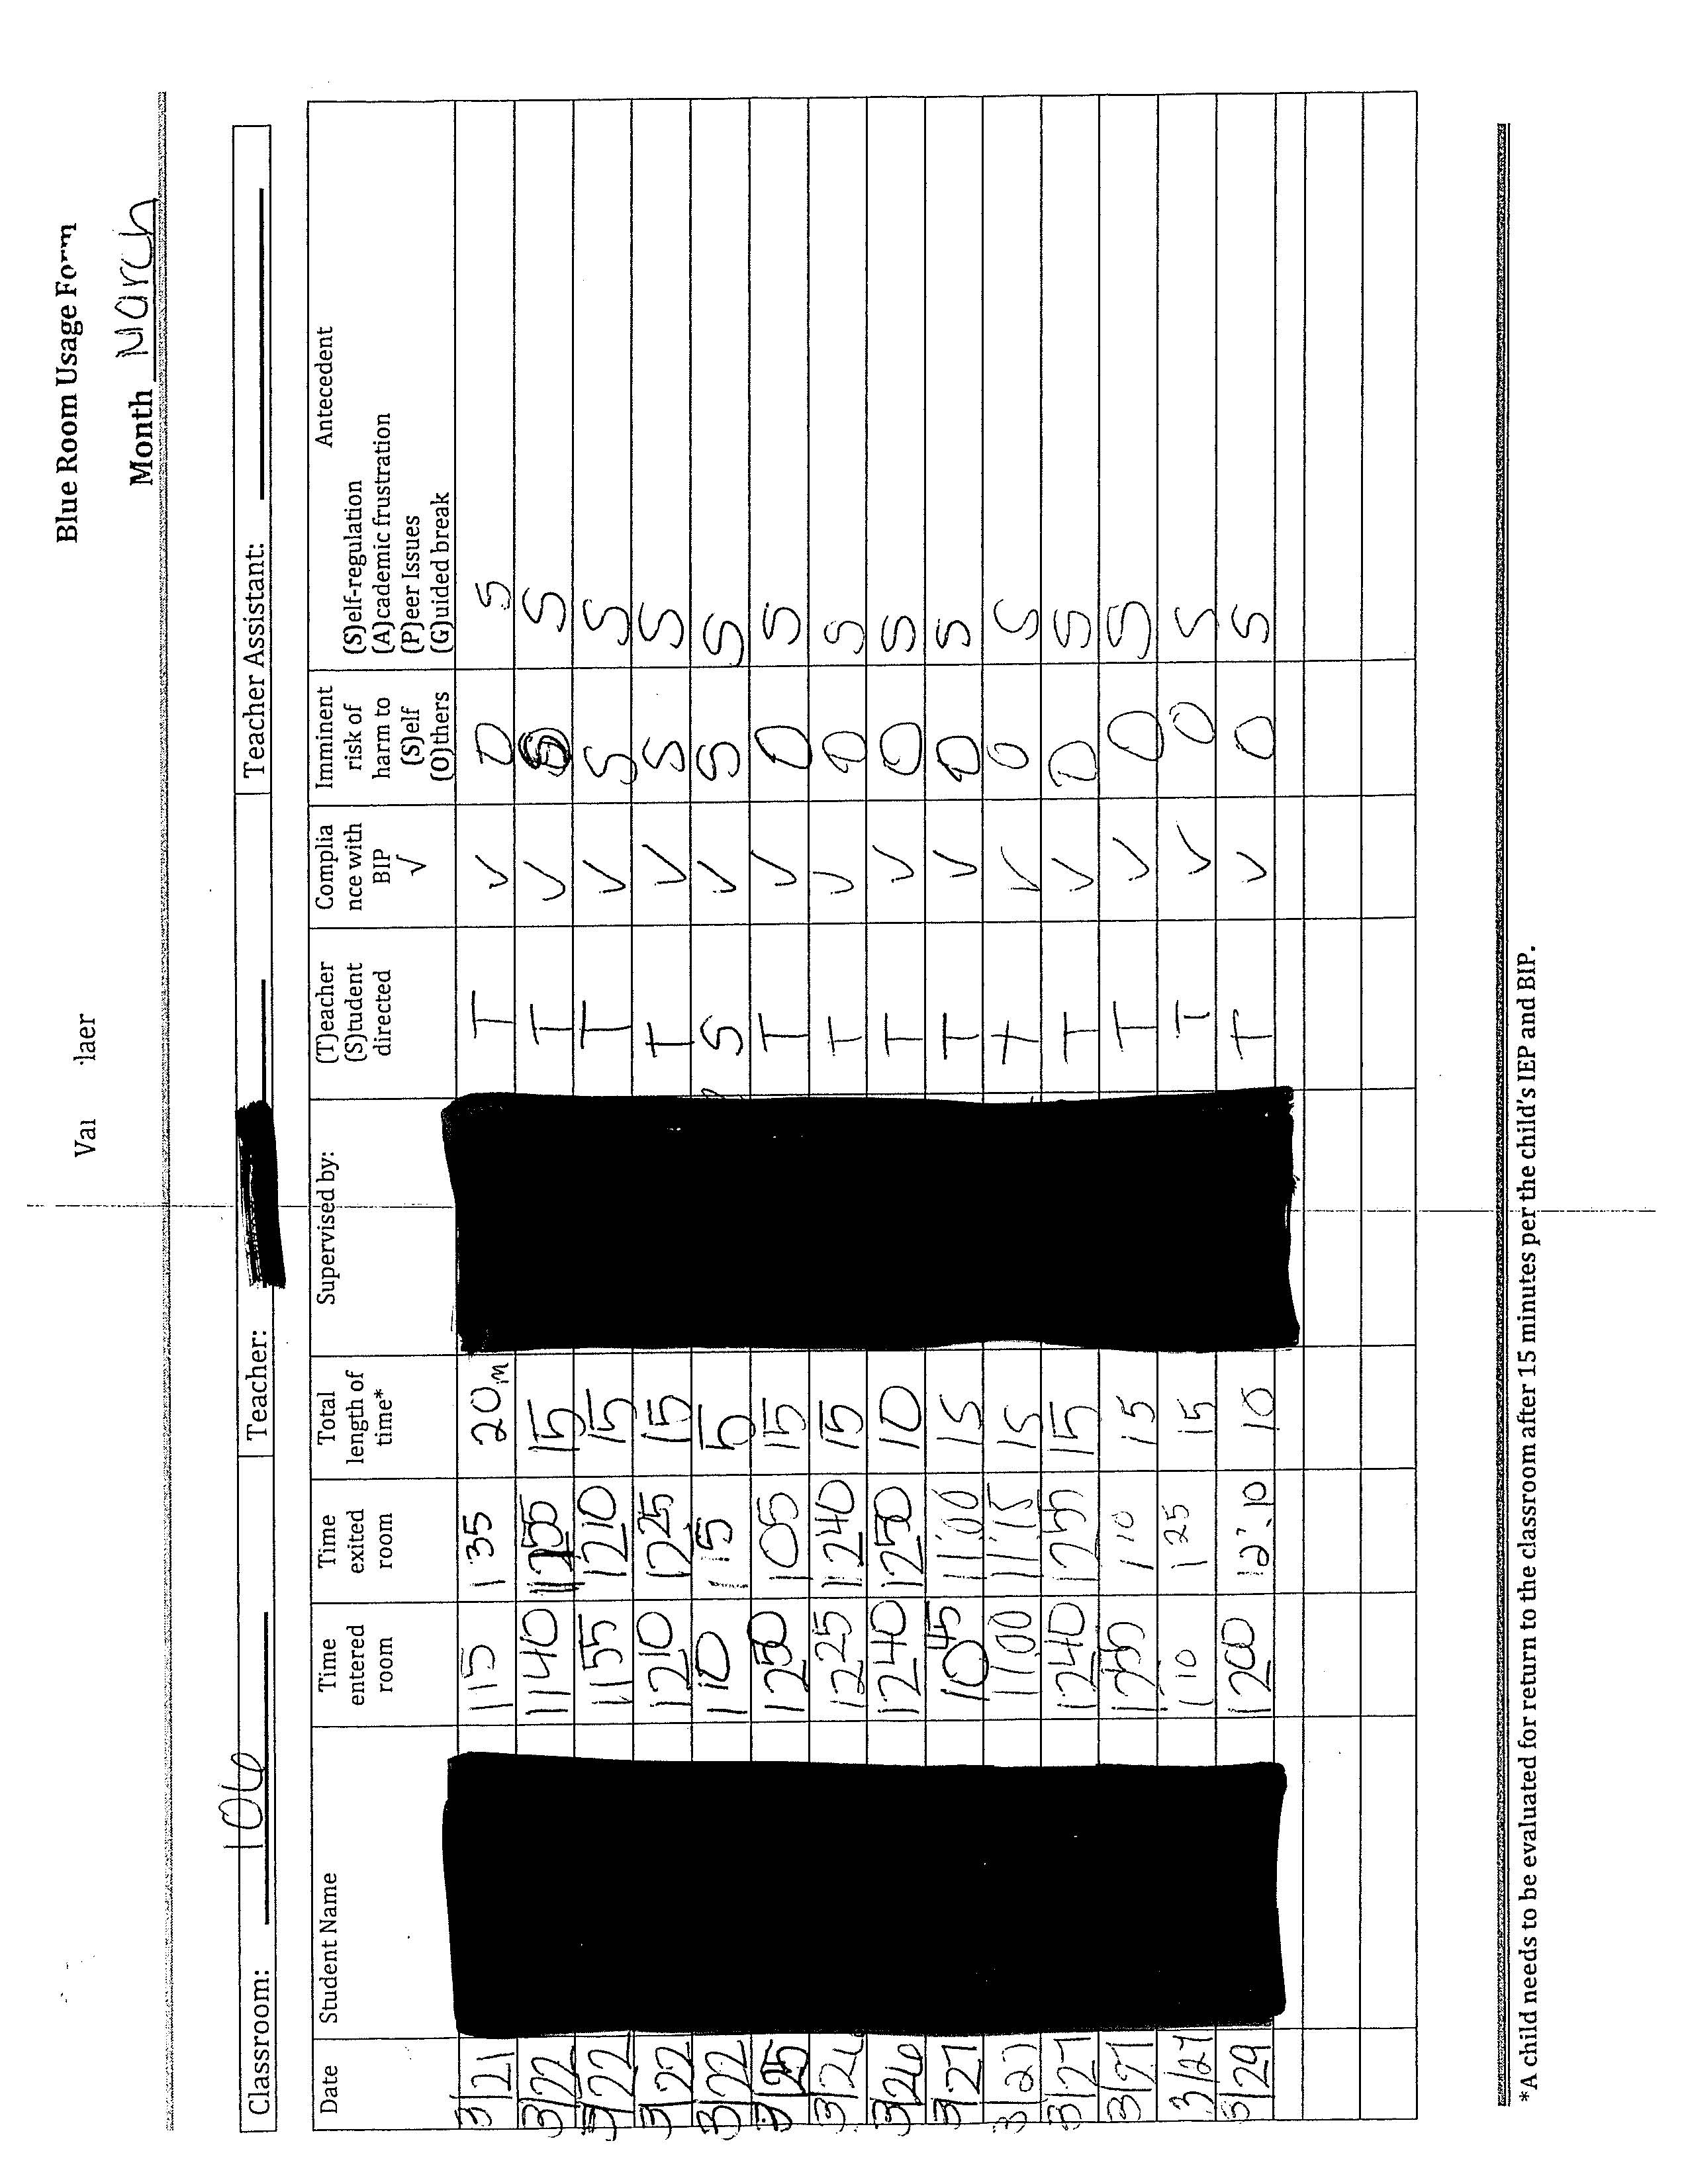 Vai laer Blue Room Usage Form
Month March
Classroom: 106 Teacher: Teacher Assistant:
Date Student Name Time entered room Time exited room Total length of time* Supervised by: (T)eacher (S)tudent directed Complia nce with BIP √ Imminent risk of harm to (S)elf (O)thers Antecedent (S)elf-regulation (A)cademic frustration (P)eer Issues (G)uided break
3/21 115 135 20m T √ O S
3/22 1140 1155 15 T √ S S
3/22 1155 1210 15 T √ S S
3/22 1210 1225 15 T √ S S
3/22 110 115 5 S √ S S
3/25 1250 105 15 T √ O S
3/26 1225 1240 15 T √ O S
3/26 1240 1250 10 T √ O S
3/27 1045 11:00 15 T √ O S
3/27 1100 11:15 15 T √ O S
3/27 1240 1255 15 T √ O S
3/27 1255 110 15 T √ O S
3/27 110 125 15 T √ O S
3/29 1200 12:10 10 T √ O S
*A child needs to be evaluated for return to the classroom after 15 minutes per the child's IEP and BIP.